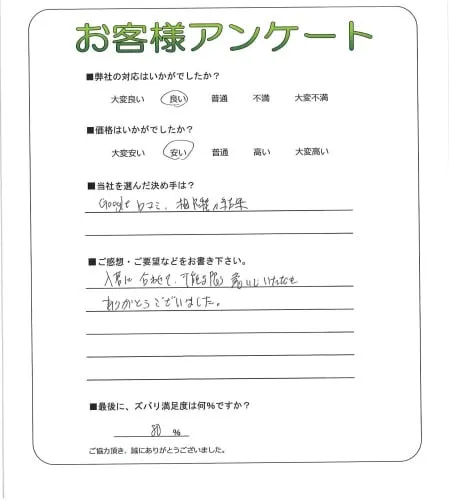 お客様アンケート
■弊社の対応はいかがでしたか？
大変良い 良い 普通 不満 大変不満
■価格はいかがでしたか？
大変安い 安い 普通 高い 大変高い
■当社を選んだ決め手は？
Google 口コミ、相見積の結果
■ご感想・ご要望などをお書き下さい。
入居に合わせて、
ありがとうございました。
■最後に、ズバリ満足度は何％ですか？
80 ％
ご協力頂き、誠にありがとうございました。